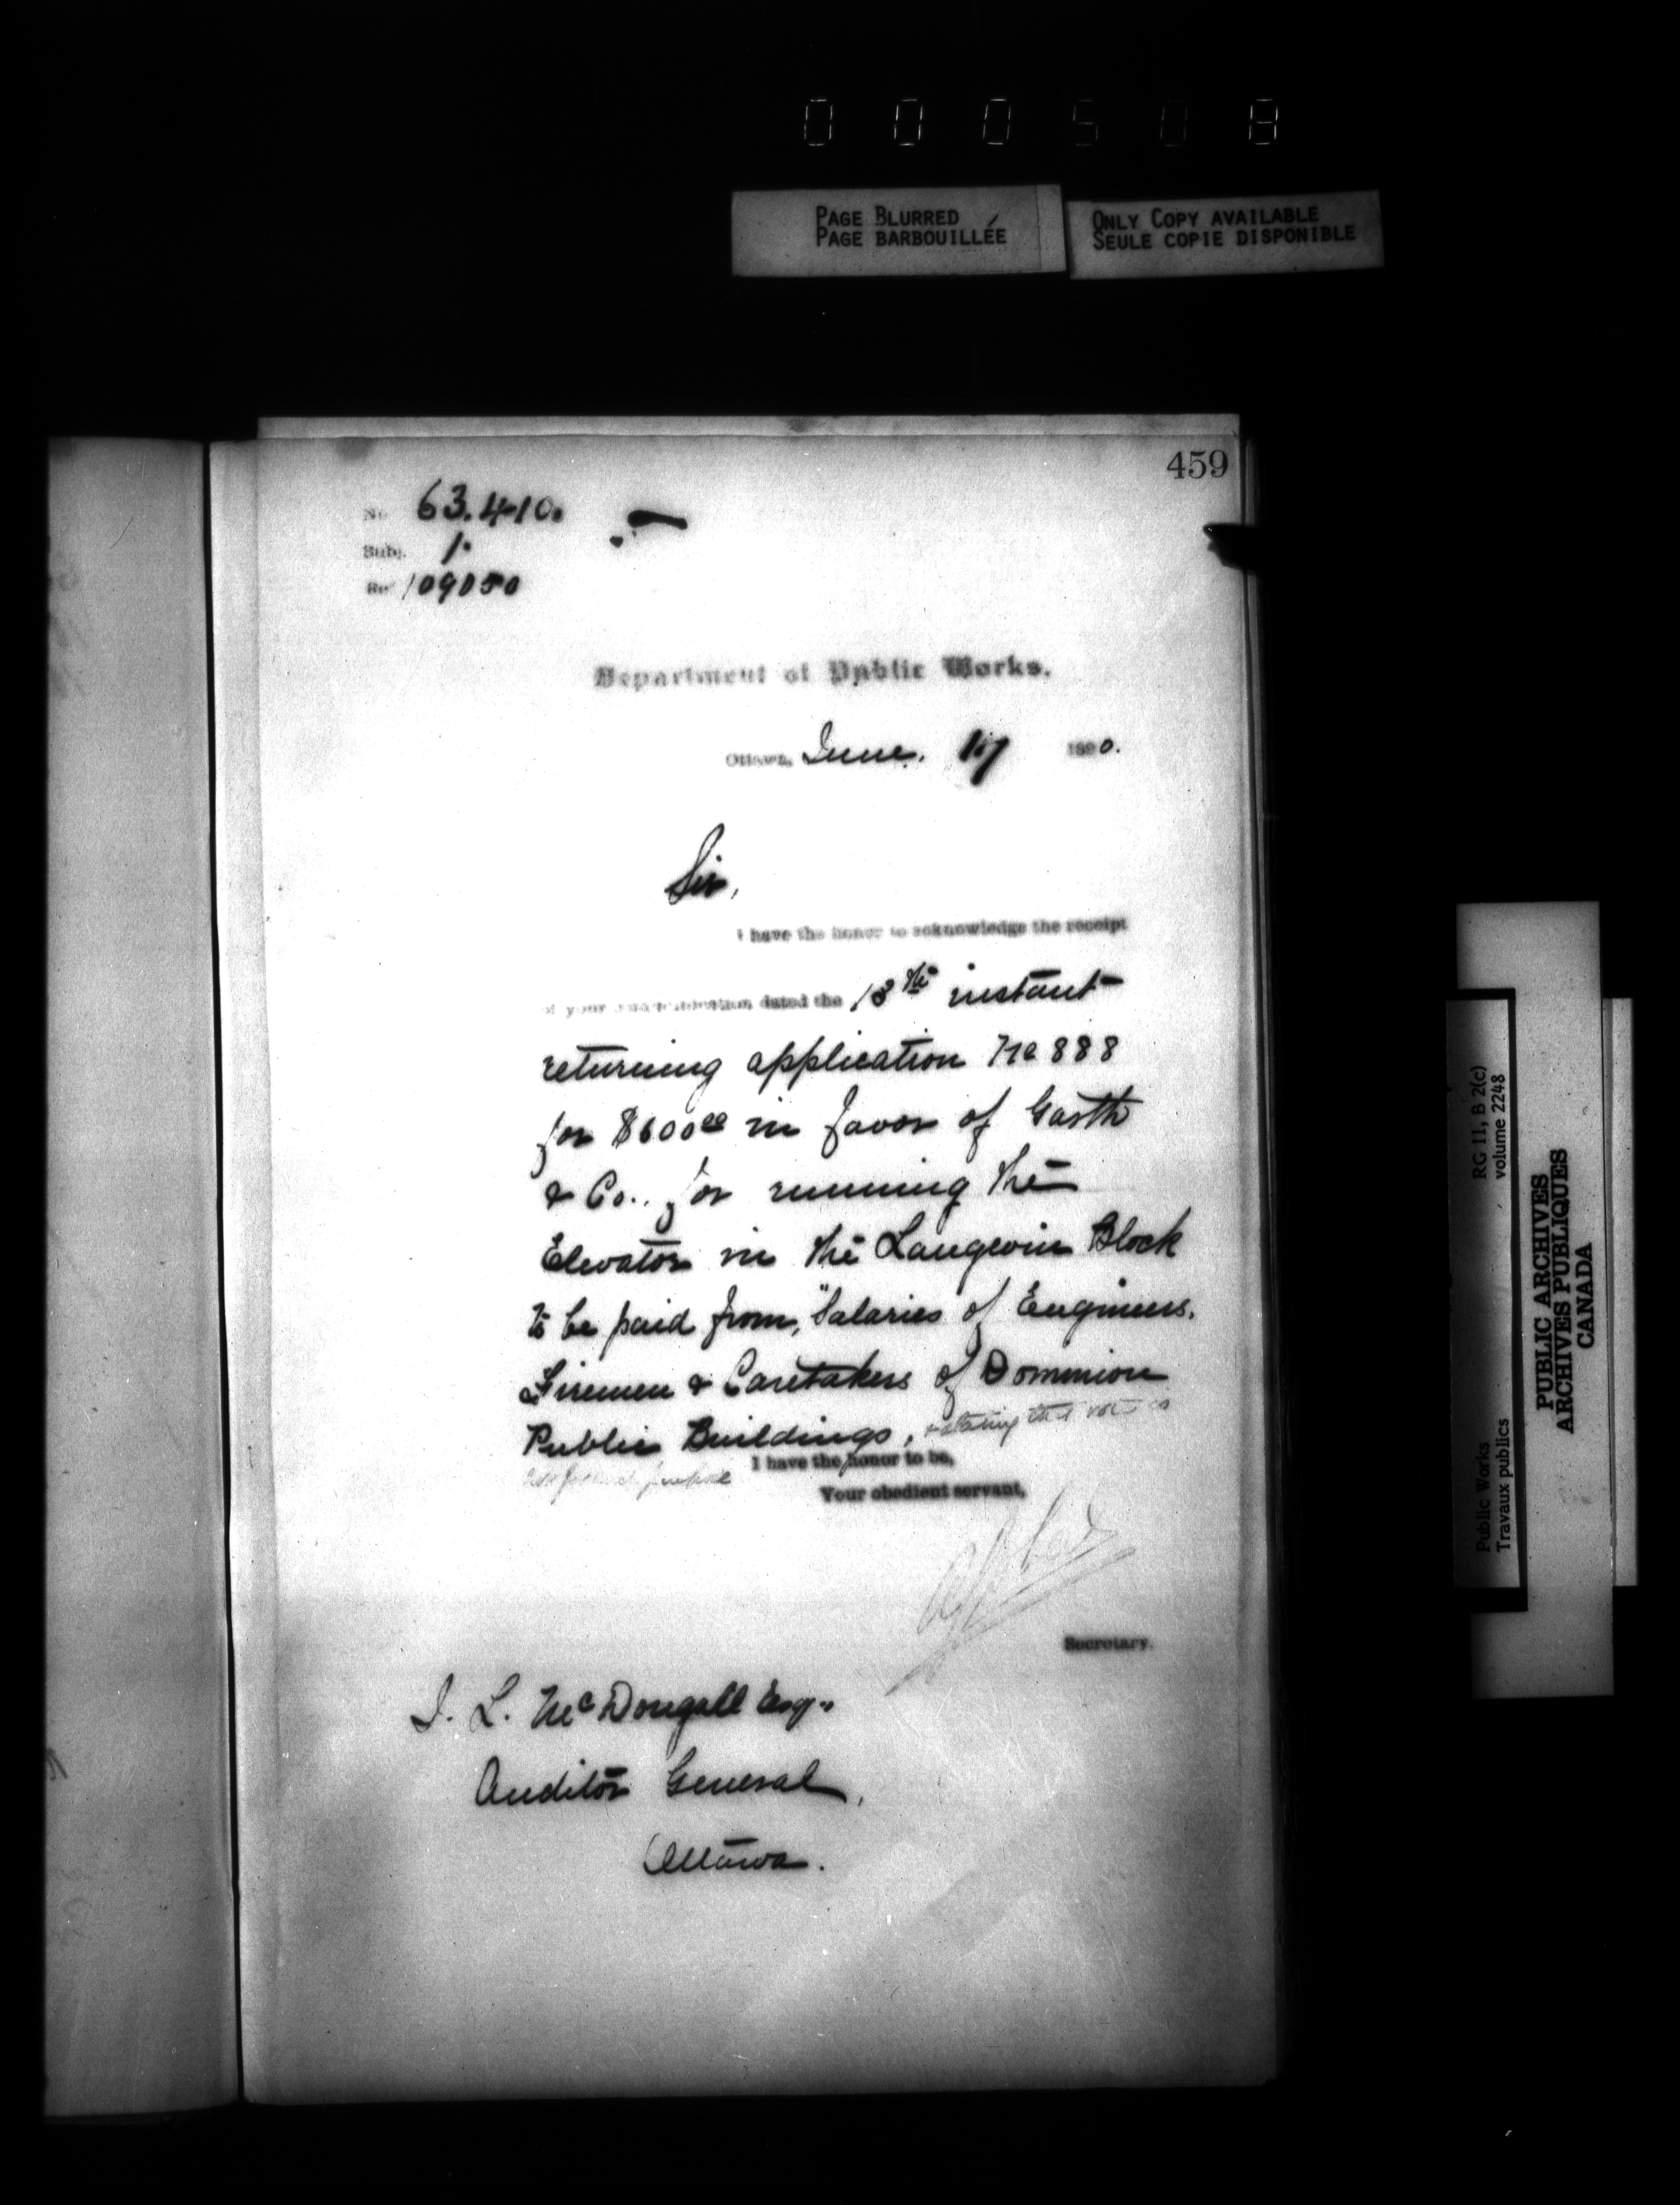 0 0 0 5 0 8
PAGE BLURRED
PAGE BARBOUILLÉE
ONLY COPY AVAILABLE
SEULE COPIE DISPONIBLE
459
No 63.410.
Subj. 1.
Ref 109050
Department of Public Works.
Ottawa, June. 17 1890.
Sir,
I have the honor to acknowledge the receipt
of your communication dated the 13th instant
returning application No 888
for $600.00 in favor of Garth
& Co. for running the
Elevator in the Langevin Block
to be paid from, "Salaries of Engineers.
Firemen & Caretakers of Dominion
Public Buildings, stating that
I have the honor to be,
Your obedient servant,
Secretary.
J. L. McDougall Esq.
Auditor General,
Ottawa.
RG 11, B 2(c)
volume 2248
Public Works
Travaux publics
PUBLIC ARCHIVES
ARCHIVES PUBLIQUES
CANADA